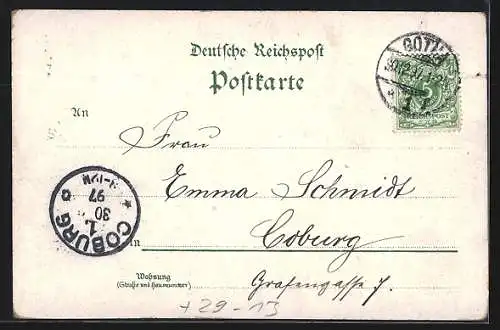 Deutsche Reichspost
Postkarte
GOTHA
An
Frau
Emma Schmidt
COBURG
30
97
in
Coburg
Wohnung
(Straße und Hausnummer)
Grafengasse 7.
+29-13